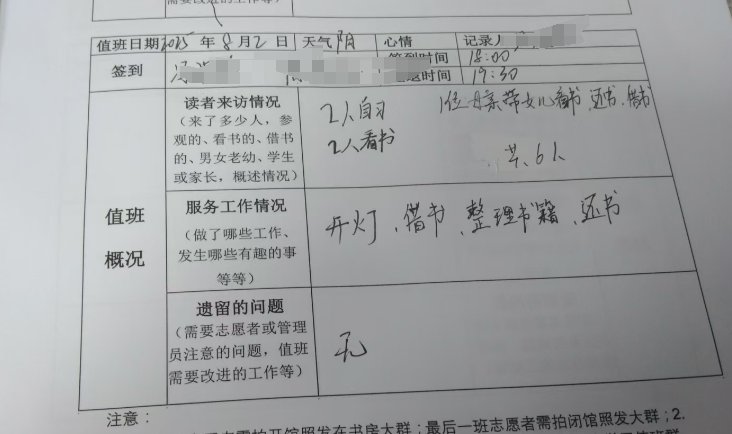 需要改进的工作等)
值班日期 2025 年 8 月 2 日 天气 阴 心情 记录人
签到 签到时间 18:00
19:30
值班概况
读者来访情况
(来了多少人,参
观的、看书的、借书
的、男女老幼、学生
或家长,概述情况)
2人自习 1位母亲带女儿看书、还书、借书
2人看书
共6人
服务工作情况
(做了哪些工作、
发生哪些有趣的事
等等)
开灯、借书、整理书籍、还书
遗留的问题
(需要志愿者或管理
员注意的问题,值班
需要改进的工作等)
无
注意:
开馆照发在书房大群;最后一班志愿者需拍闭馆照发大群;2.